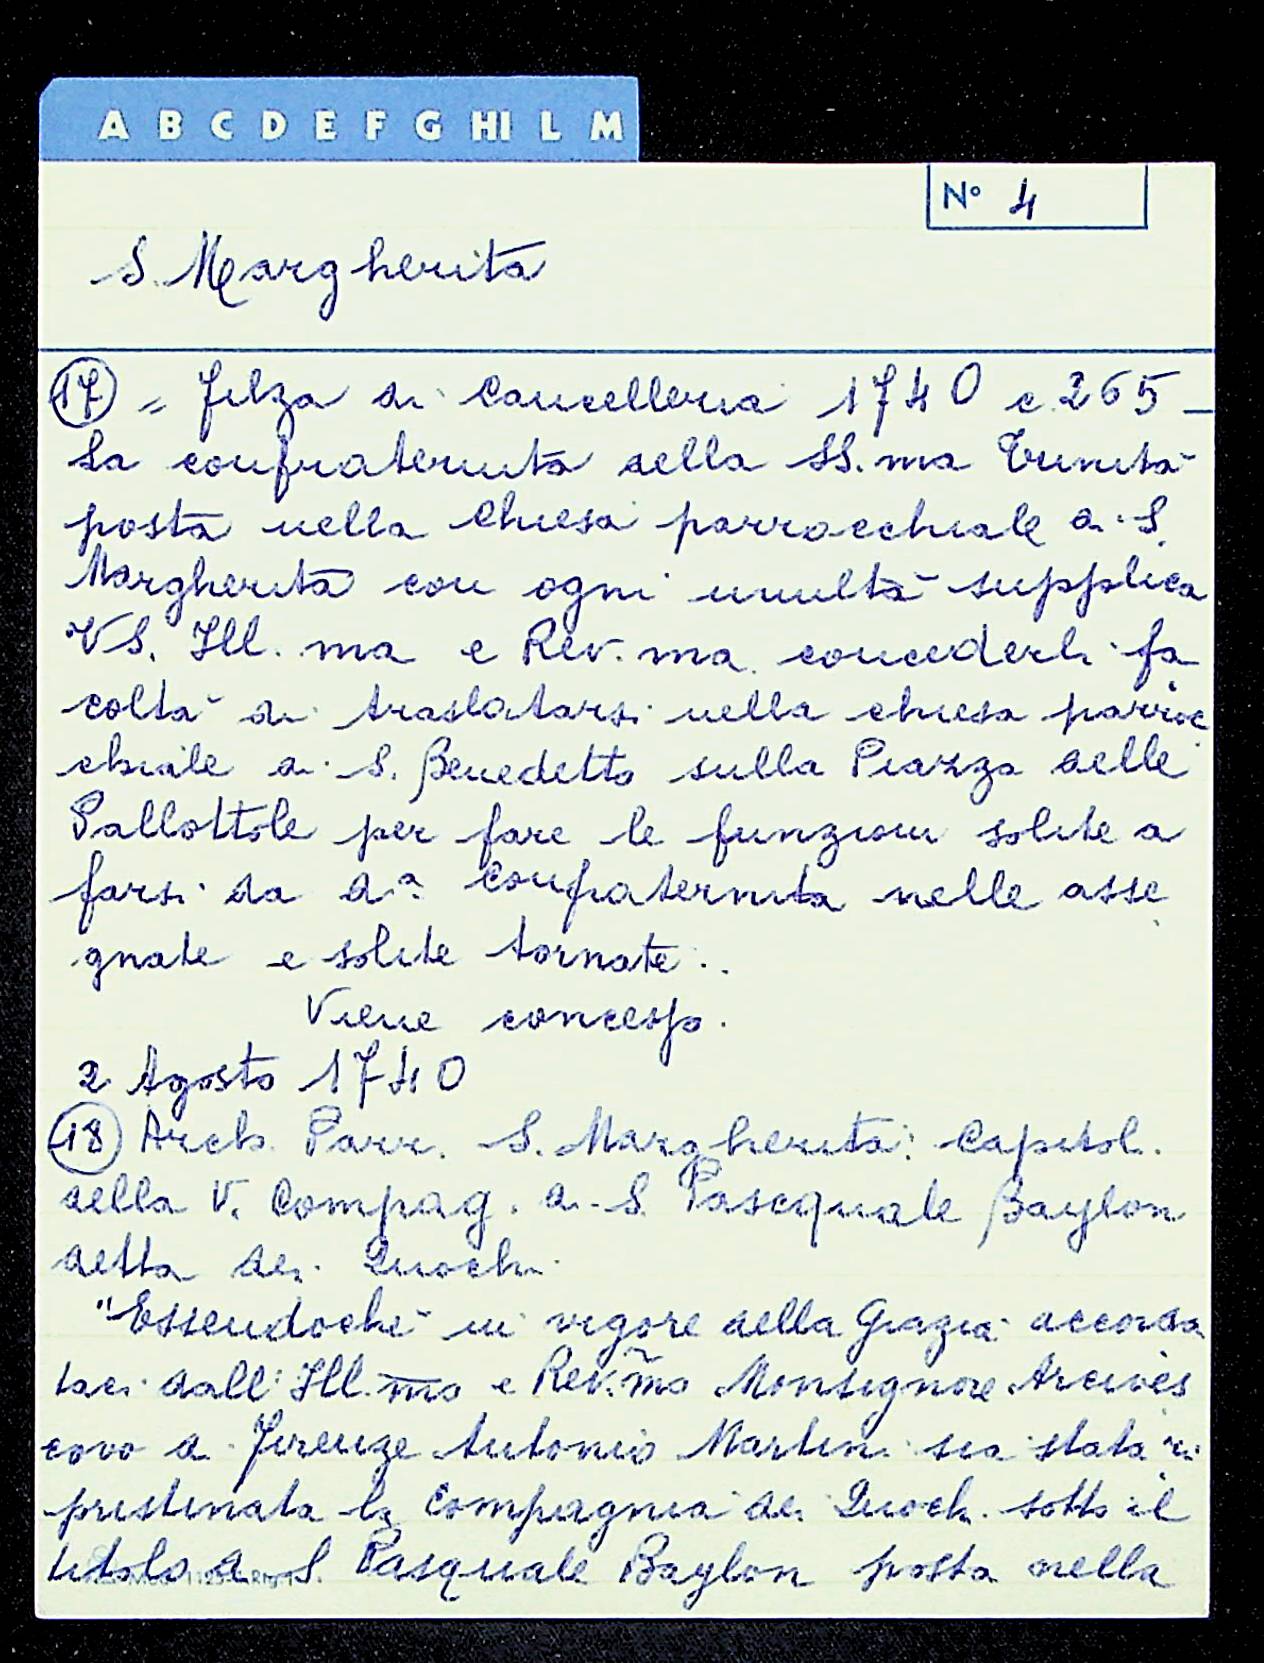 A B C D E F G HI L M
N° 4
S. Margherita
17 = Filza di Cancelleria 1740 c. 265 _
La confraternita della SS.ma Trinità
posta nella Chiesa parrocchiale di S.
Margherita con ogni umiltà supplica
VS. Ill.ma e Rev.ma concederli fa
coltà di traslatarsi nella chiesa parroc
chiale di S. Benedetto sulla Piazza delle
Pallottole per fare le funzioni solite a
farsi da d.ª Confraternita nelle asse
gnate e solite tornate..
Viene concesso.
2 Agosto 1740
18 Arch. Parr. S. Margherita: Capitol.
della V. Compag. di S. Pascquale Baylon
detta dei Quochi.
"Essendoché in vigore della Grazia accorda
taci dall' Ill.mo e Rev.mo Monsignore Arcives
covo di Firenze Antonio Martini sia stata ri
pristinata la Compagnia dei Quochi sotto il
titolo di S. Pasquale Baylon posta nella